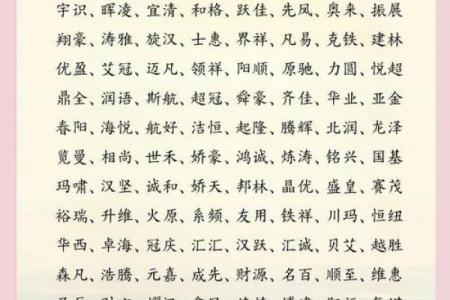 宇识、晖凌、宜清、和格、跃佳、先风、奥来、振展
翔豪、涛雅、旋汉、士惠、界祥、凡易、克铁、建林
优盈、艾冠、迈凡、领祥、阳顺、原驰、力圆、悦超
鼎全、润语、斯航、超冠、舜豪、齐佳、华业、亚金
春阳、海悦、航好、洁恒、起隆、腾辉、北润、龙泽
览曼、相尚、世禾、娇豪、鸿诚、炼涛、铭兴、国基
玛啸、汉坚、诚和、娇天、邦林、晶优、盛皇、赛茂
裕瑞、升维、火原、系频、友用、铁祥、川玛、恒纽
华西、卓海、冠庆、汇汇、汉跃、汇诚、贝艾、越胜
森凡、浩腾、元嘉、成先、财源、名百、顺至、维惠